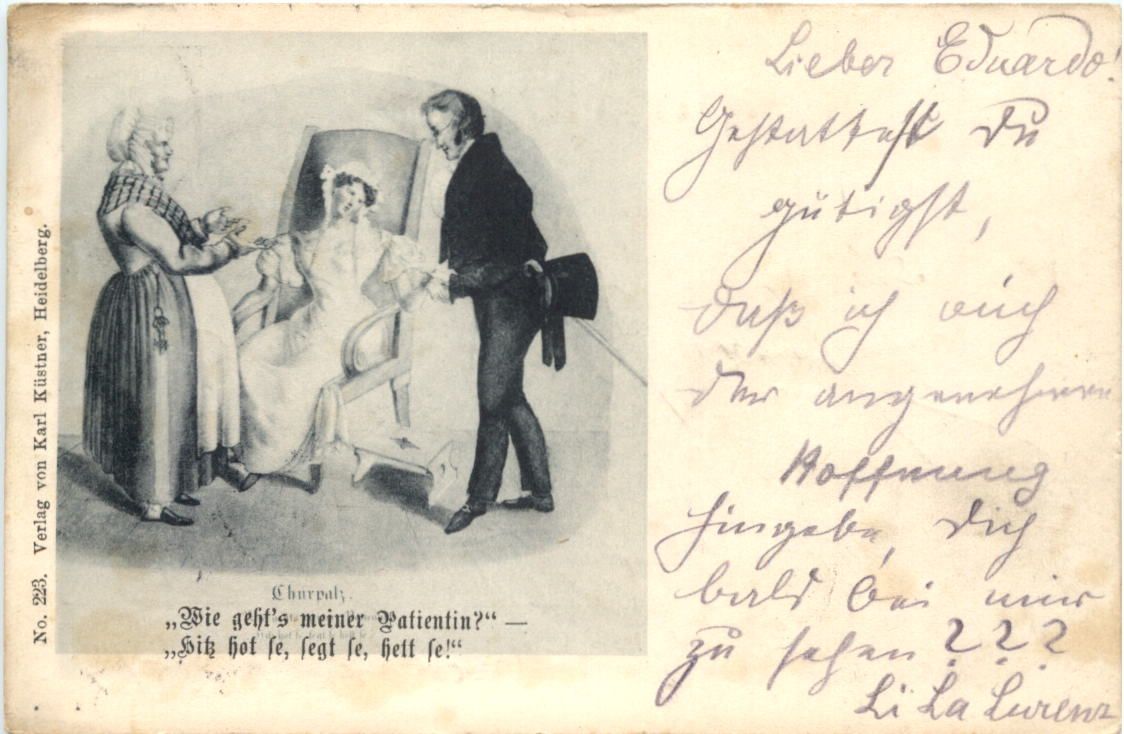 No. 223. Verlag von Karl Küstner, Heidelberg.
Churpalz.
„Wie geht's meiner Patientin?“ —
„Hitz hot se, segt se, hett se!“
Lieber Eduardo!
Gestattest Du
gütigst,
daß ich mich
der angenehmen
Hoffnung
hingebe, Dich
bald bei mir
zu sehen ? ? ?
Li La Lurenz